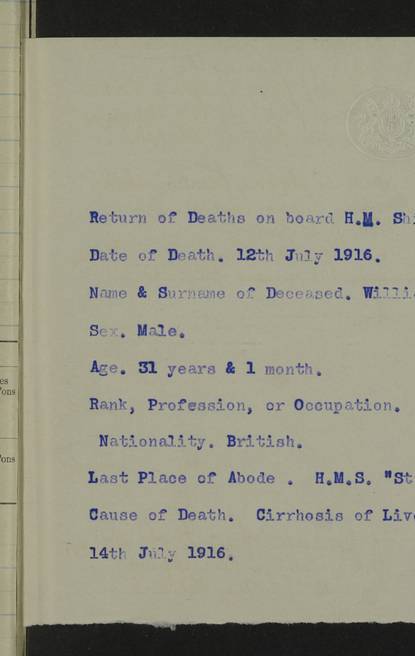 es
'ons
'ons
Return of Deaths on board H.M. Shi
Date of Death. 12th July 1916.
Name & Surname of Deceased. Willia
Sex. Male.
Age. 31 years & 1 month.
Rank, Profession, or Occupation.
Nationality. British.
Last Place of Abode . H.M.S. "St
Cause of Death. Cirrhosis of Live
14th July 1916.